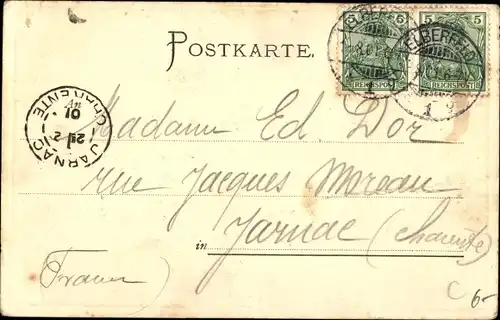 POSTKARTE.
5 5
REICHSPOST REICHSPOST
ELBERFELD
1
ELBERFELD
1
JARNAC
CHARENTE
01
Madame Ed. Dor
rue Jacques Moreau
in Jarnac (Charente)
(France)
C 6-